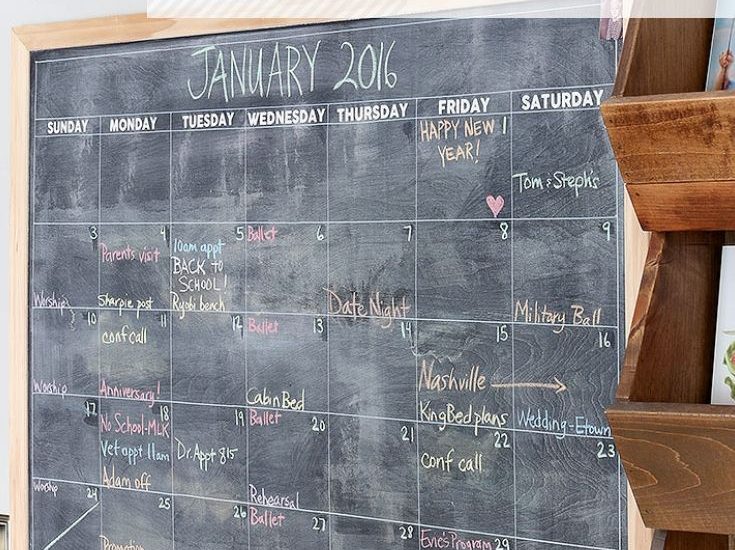 JANUARY 2016
SUNDAY MONDAY TUESDAY WEDNESDAY THURSDAY FRIDAY SATURDAY
HAPPY NEW 1
YEAR!
Tom & Steph's
3 4 5 Ballet 6 7 8 9
Parents visit 10am appt
BACK TO
SCHOOL!
Worship Sharpie post Ryobi bench Date Night Military Ball
10 11 12 Ballet 13 14 15 16
conf call
Nashville →
Worship Anniversary! Cabin Bed King Bed plans Wedding-Etown
17 18 19 Ballet 20 21 22 23
No School-MLK
Vet appt 11am Dr. Appt 815 conf call
Adam off
Worship Rehearsal
24 25 26 Ballet 27 28 Evie's Program 29
Promotion